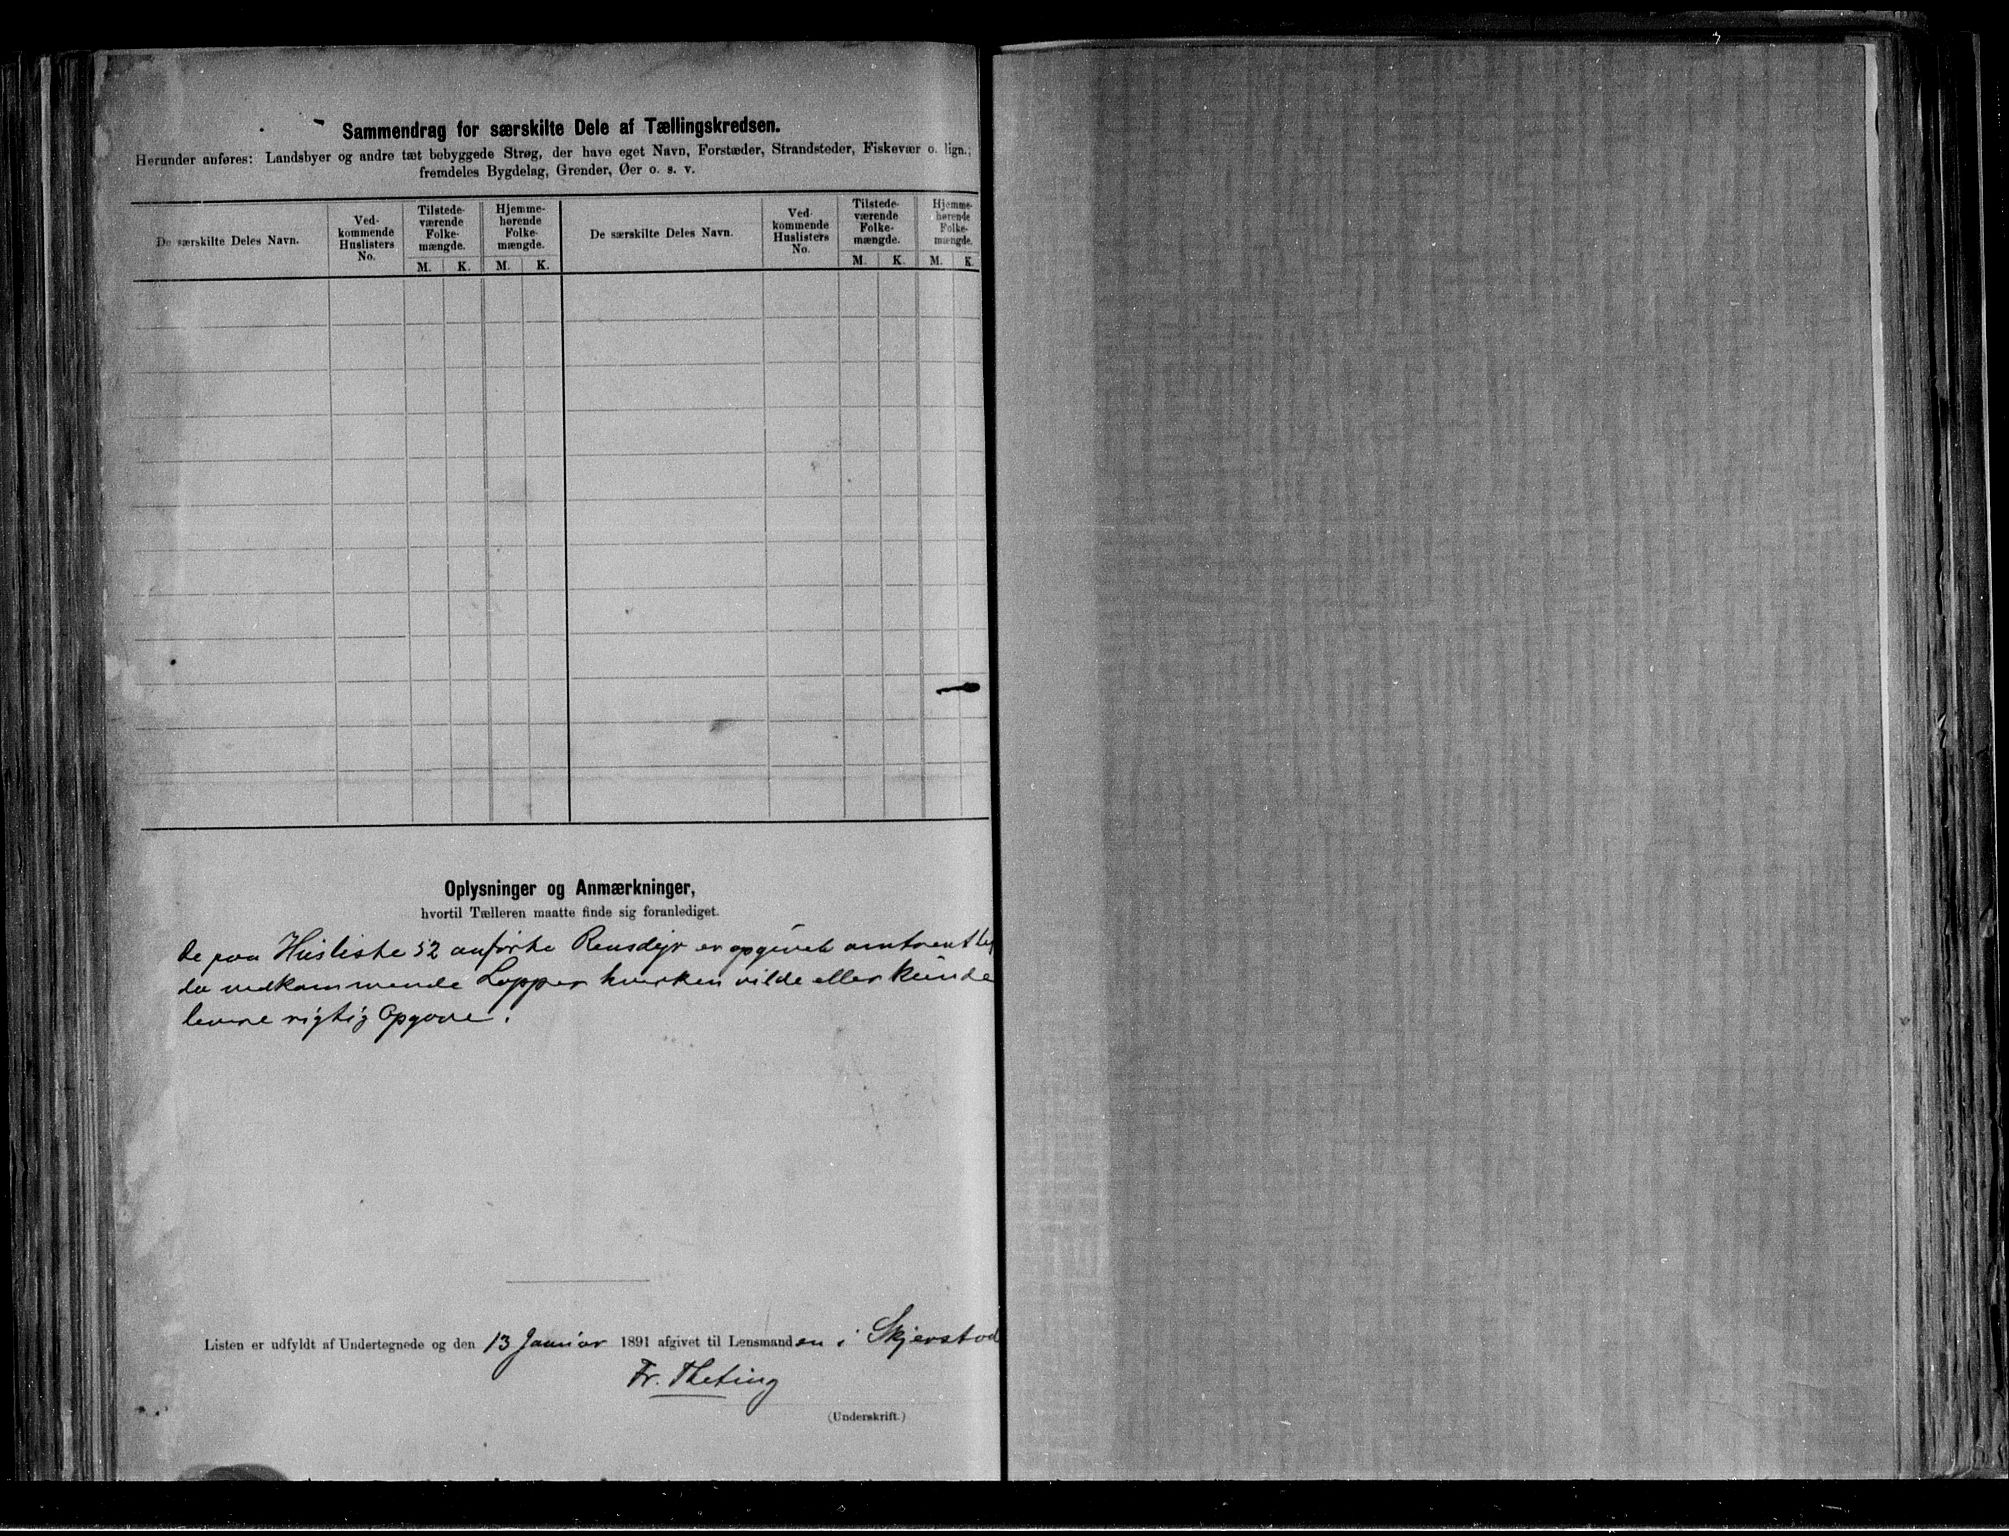 Sammendrag for særskilte Dele af Tællingskredsen.
Herunder anføres: Landsbyer og andre tæt bebyggede Strøg, der have eget Navn, Forstæder, Strandsteder, Fiskevær o. lign.;
fremdeles Bygdelag, Grender, Øer o. s. v.
De særskilte Deles Navn.
Ved-
kommende
Huslisters
No.
Tilstede-
værende
Folke-
mængde.
M. K.
Hjemme-
hørende
Folke-
mængde.
M. K.
De særskilte Deles Navn.
Ved-
kommende
Huslisters
No.
Tilstede-
værende
Folke-
mængde.
M. K.
Hjemme-
hørende
Folke-
mængde.
M. K.
Oplysninger og Anmærkninger,
hvortil Tælleren maatte finde sig foranlediget.
De paa Husliste 52 anførte Rensdyr er opgivet omtrentlig
da vedkommende Lapper hverken vilde eller kunde
levere rigtig Opgave.
Listen er udfyldt af Undertegnede og den 13 Januar 1891 afgivet til Lensmanden i Skjerstad
Fr. Theting
(Underskrift.)